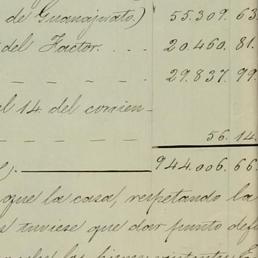 de Guanajuato.) 55.309. 63.
del Factor. . . . 20.460. 81.
29.837. 99.
el 14. del corrien-
56. 14.
944.006. 66.
que la casa, respetando la
tuviese que dar punto